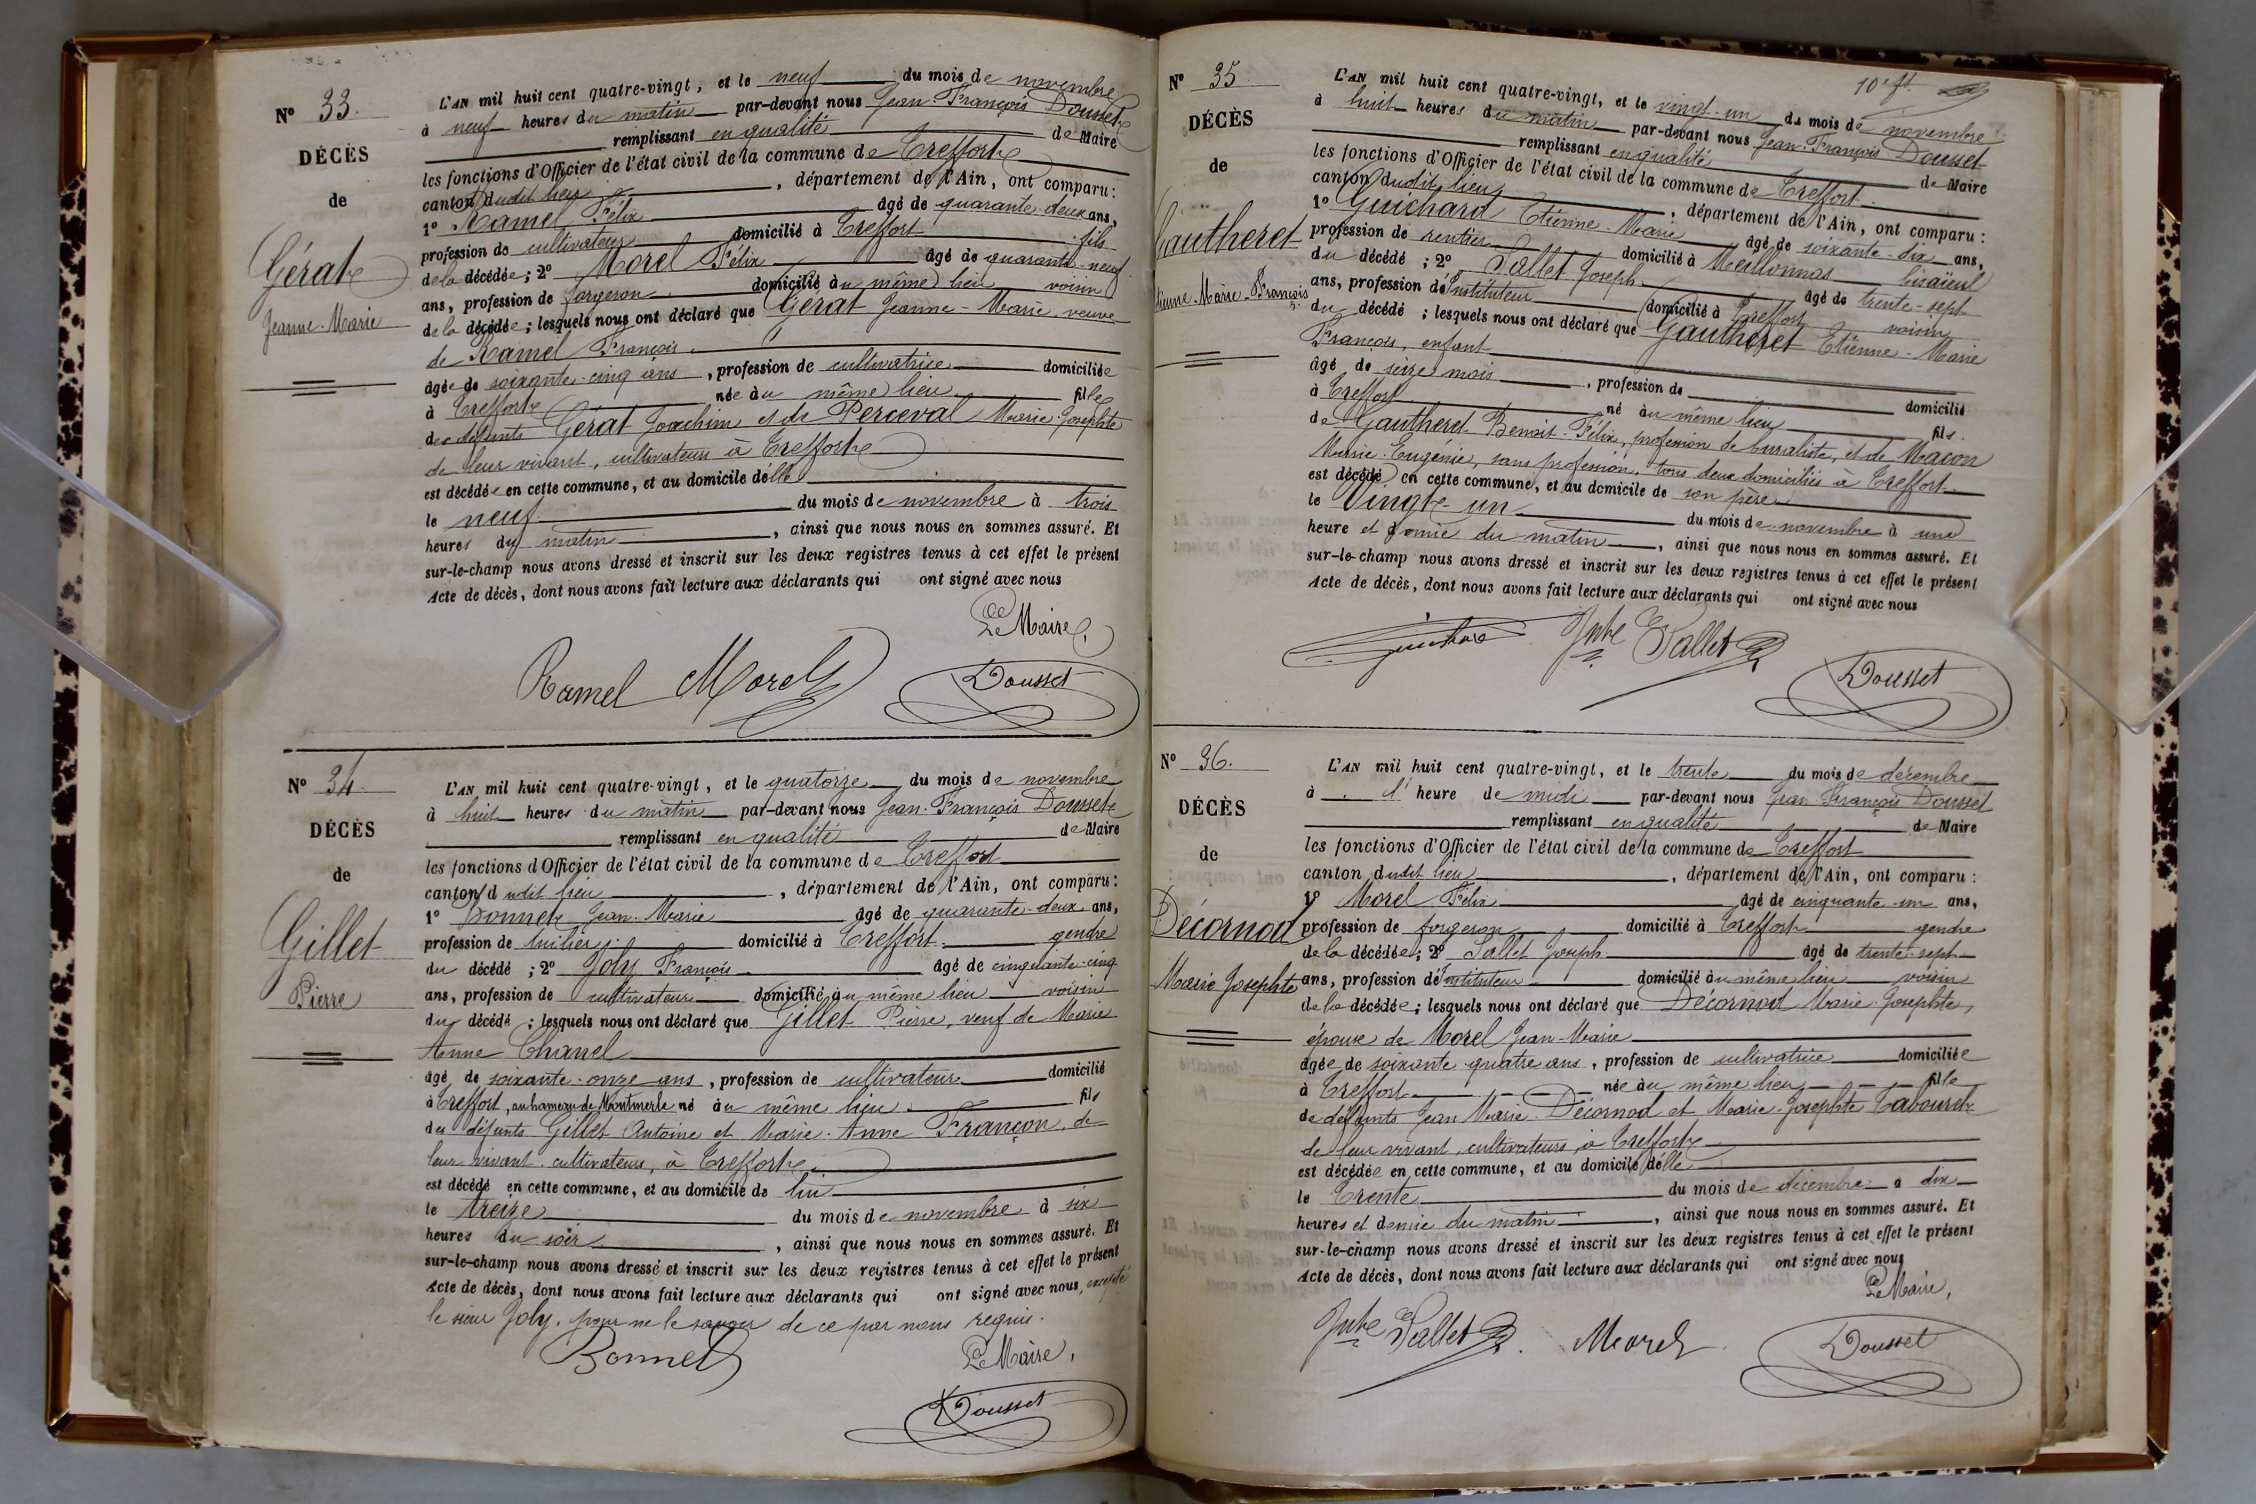 N° 33.
DÉCÈS
de
Gérat
Jeanne-Marie
L'AN mil huit cent quatre-vingt, et le neuf du mois de novembre
à neuf heures du matin par-devant nous Jean-François Dousset
remplissant en qualité de Maire
les fonctions d'Officier de l'état civil de la commune de Treffort
canton dudit lieu, département de l'Ain, ont comparu:
1° Ramel Félix âgé de quarante-deux ans,
profession de cultivateur domicilié à Treffort fils
de la décédée; 2° Morel Félix âgé de quarante-neuf
ans, profession de forgeron domicilié au même lieu voisin
de la décédée; lesquels nous ont déclaré que Gérat Jeanne-Marie, veuve
de Ramel François.
âgée de soixante-cinq ans, profession de cultivatrice domiciliée
à Treffort née au même lieu fille
des défunts Gérat Joachim et de Perceval Marie-Josephte
de leur vivant, cultivateurs à Treffort
est décédée en cette commune, et au domicile d'elle
le neuf du mois de novembre à trois
heures du matin, ainsi que nous nous en sommes assuré. Et
sur-le-champ nous avons dressé et inscrit sur les deux registres tenus à cet effet le présent
Acte de décès, dont nous avons fait lecture aux déclarants qui ont signé avec nous
Le Maire,
Ramel Morel Dousset
N° 34.
DÉCÈS
de
Gillet
Pierre
L'AN mil huit cent quatre-vingt, et le quatorze du mois de novembre
à huit heures du matin par-devant nous Jean-François Dousset
remplissant en qualité de Maire
les fonctions d'Officier de l'état civil de la commune de Treffort
canton dudit lieu, département de l'Ain, ont comparu:
1° Bonnet Jean-Marie âgé de quarante-deux ans,
profession de tuilier domicilié à Treffort gendre
du décédé; 2° Joly François âgé de cinquante-cinq
ans, profession de cultivateur domicilié au même lieu voisin
du décédé; lesquels nous ont déclaré que Gillet Pierre, veuf de Marie
Anne Chanel
âgé de soixante-onze ans, profession de cultivateur domicilié
à Treffort, au hameau de Montmerle né au même lieu fils
des défunts Gillet Antoine et Marie-Anne Françon, de
leur vivant cultivateurs, à Treffort
est décédé en cette commune, et au domicile de lui
le treize du mois de novembre à six
heures du soir, ainsi que nous nous en sommes assuré. Et
sur-le-champ nous avons dressé et inscrit sur les deux registres tenus à cet effet le présent
Acte de décès, dont nous avons fait lecture aux déclarants qui ont signé avec nous, excepté
le sieur Joly, pour ne le savoir de ce par nous requis.
Bonnet Le Maire,
Dousset
10e ft
N° 35.
DÉCÈS
de
Gautheret
Etienne-Marie-François
L'AN mil huit cent quatre-vingt, et le vingt-un du mois de novembre
à huit heures du matin par-devant nous Jean-François Dousset
remplissant en qualité de Maire
les fonctions d'Officier de l'état civil de la commune de Treffort
canton dudit lieu, département de l'Ain, ont comparu:
1° Guichard Etienne-Marie âgé de soixante-dix ans,
profession de rentier domicilié à Meillonnas bisaïeul
du décédé; 2° Sallet Joseph âgé de trente-sept
ans, profession d'Instituteur domicilié à Treffort voisin
du décédé; lesquels nous ont déclaré que Gautheret Etienne-Marie
François, enfant
âgé de seize mois, profession de domicilié
à Treffort né au même lieu fils
de Gautheret Benoit-Félix, profession de buraliste, et de Macon
Marie-Eugénie, sans profession, tous deux domiciliés à Treffort
est décédé en cette commune, et au domicile de son père
le Vingt-un du mois de novembre à une
heure et demie du matin, ainsi que nous nous en sommes assuré. Et
sur-le-champ nous avons dressé et inscrit sur les deux registres tenus à cet effet le présent
Acte de décès, dont nous avons fait lecture aux déclarants qui ont signé avec nous
Guichard Jph Sallet
Dousset
N° 36.
DÉCÈS
de
Décornod
Marie Josephte
L'AN mil huit cent quatre-vingt, et le trente du mois de décembre
à l'heure de midi par-devant nous Jean François Dousset
remplissant en qualité de Maire
les fonctions d'Officier de l'état civil de la commune de Treffort
canton dudit lieu, département de l'Ain, ont comparu:
1° Morel Félix âgé de cinquante-un ans,
profession de forgeron domicilié à Treffort gendre
de la décédée; 2° Sallet Joseph âgé de trente-sept
ans, profession d'Instituteur domicilié au même lieu voisin
de la décédée; lesquels nous ont déclaré que Décornod Marie-Josephte,
épouse de Morel Jean-Marie
âgée de soixante-quatre ans, profession de cultivatrice domiciliée
à Treffort née au même lieu fille
de défunts Jean Marie Décornod et Marie-Josephte Tabouret
de leur vivant, cultivateurs, à Treffort
est décédée en cette commune, et au domicile d'elle
le trente du mois de décembre à dix
heures et demie du matin, ainsi que nous nous en sommes assuré. Et
sur-le-champ nous avons dressé et inscrit sur les deux registres tenus à cet effet le présent
Acte de décès, dont nous avons fait lecture aux déclarants qui ont signé avec nous
Le Maire,
Jph Sallet Morel Dousset